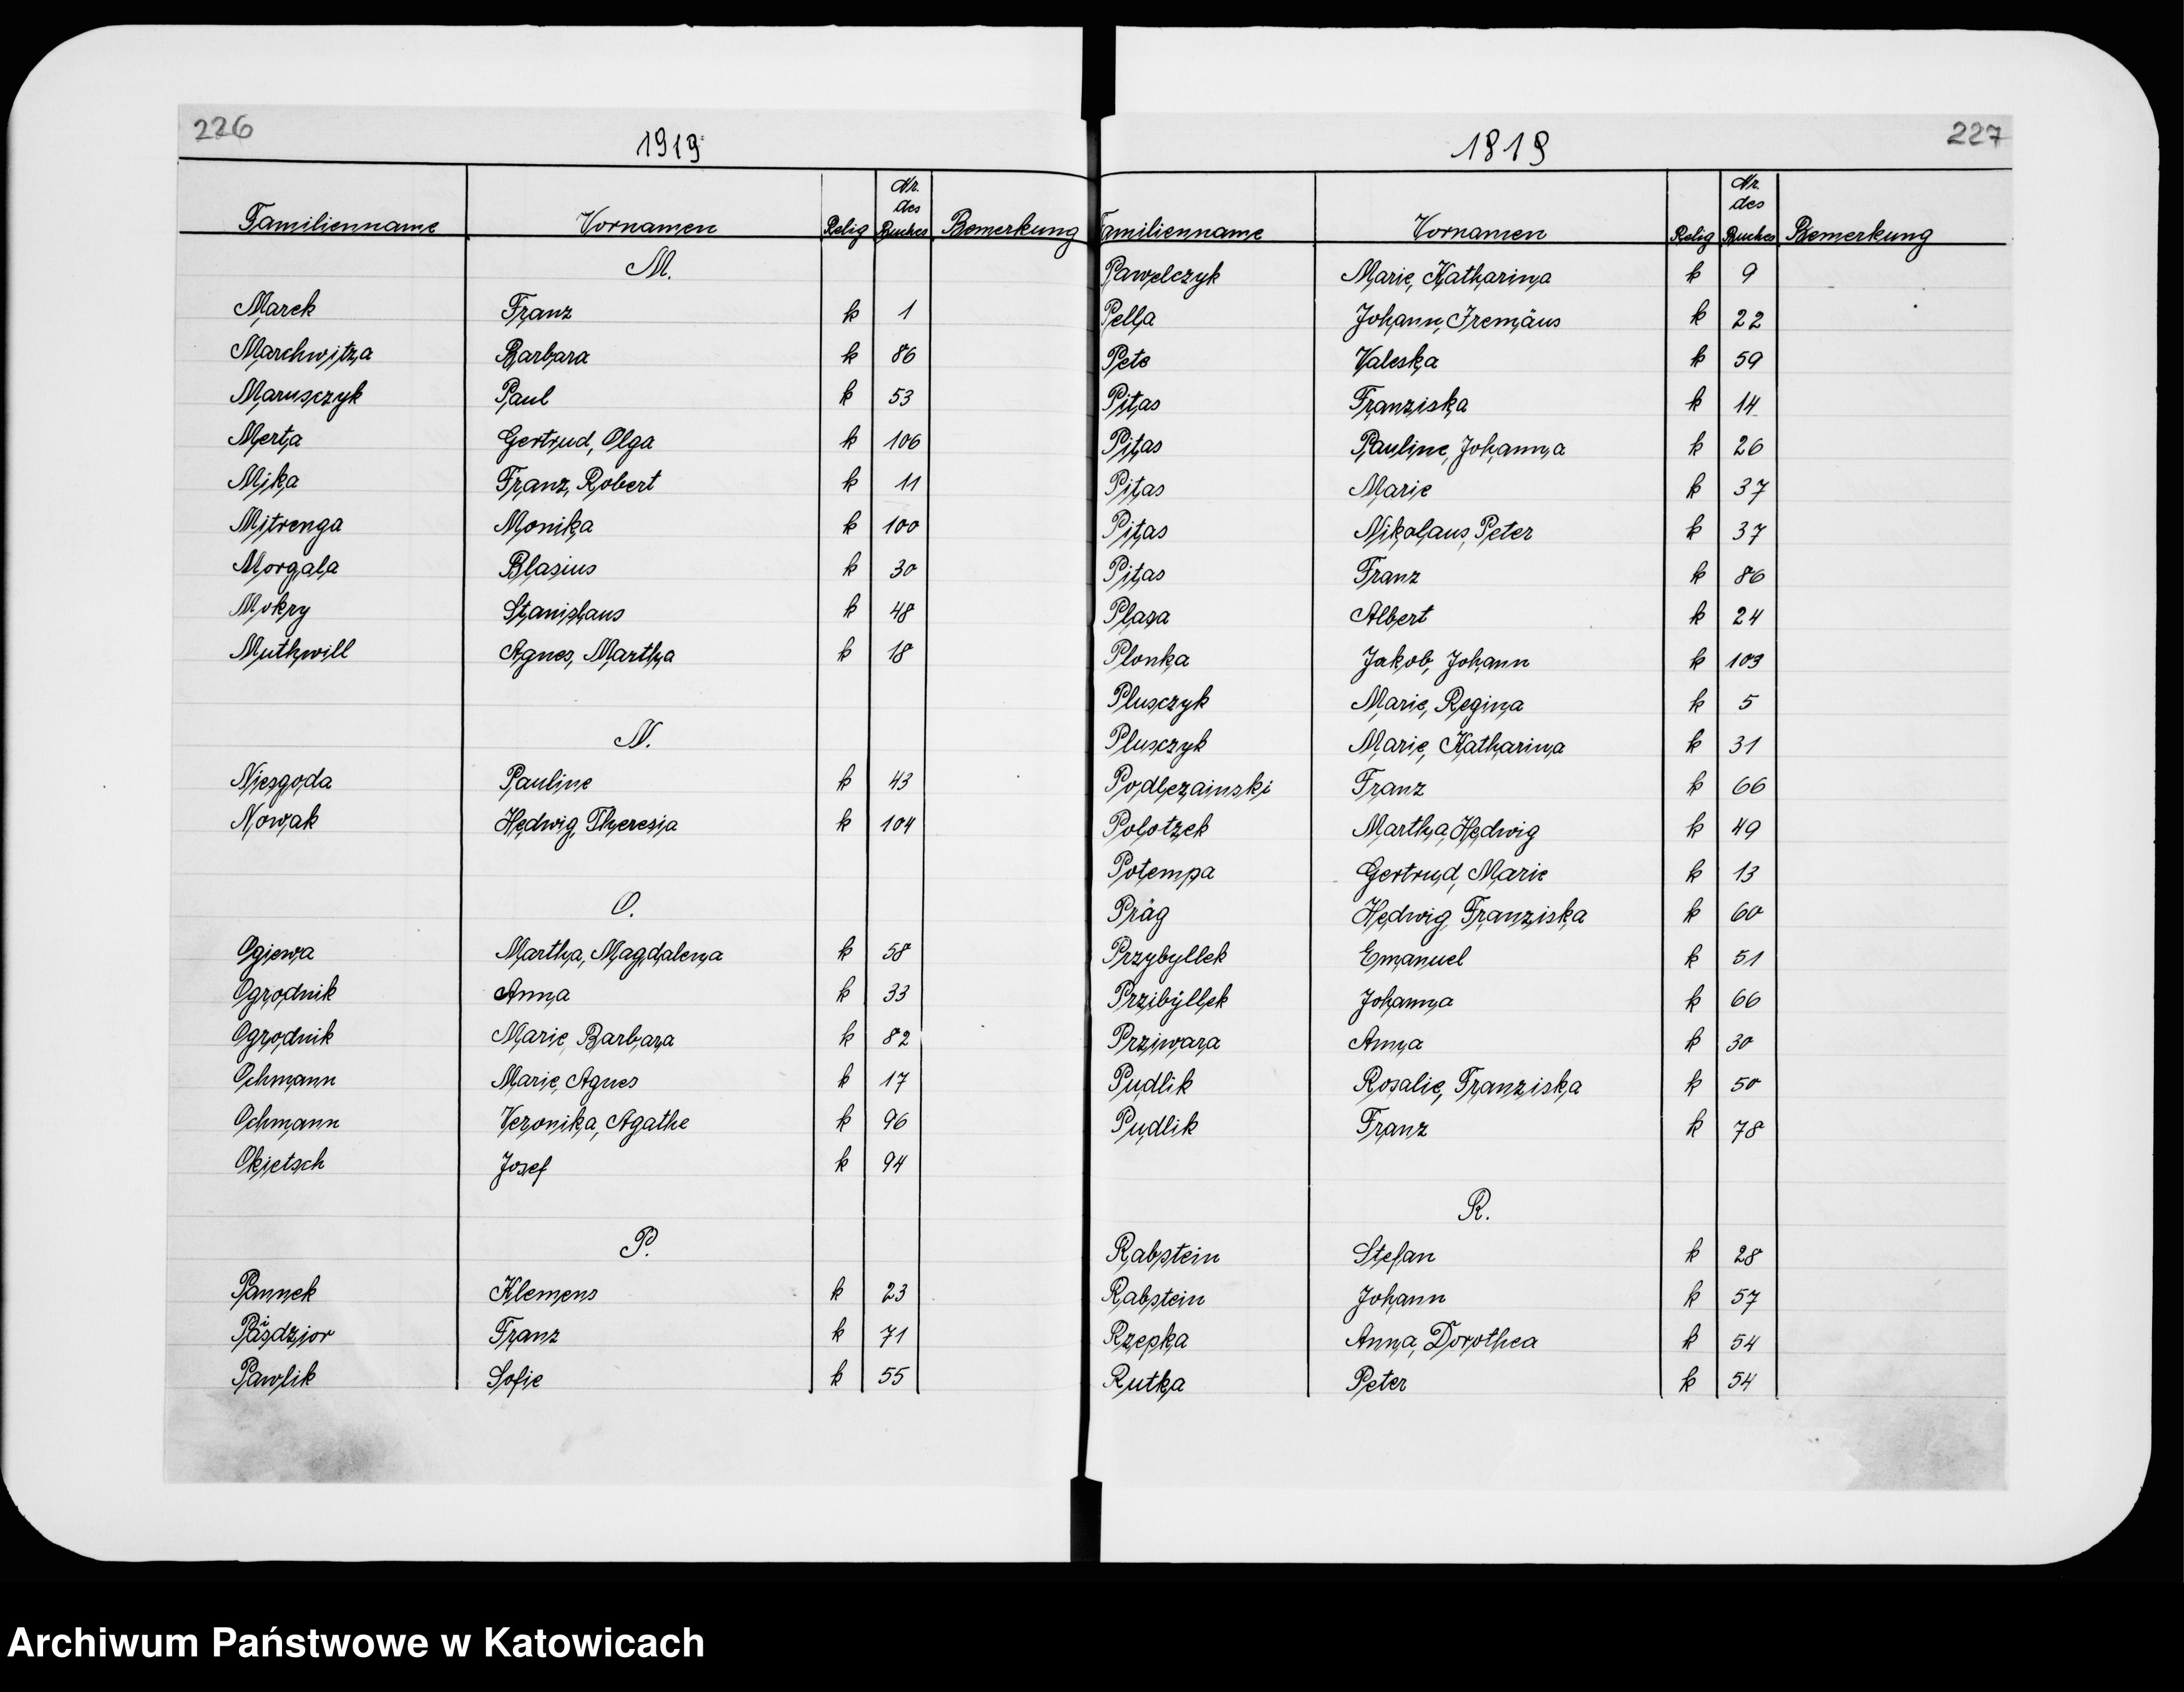 226
1919
Familienname Vornamen Relig Nr. des Buches Bemerkung
M.
Marek Franz k 1
Marchwitza Barbara k 86
Marusczyk Paul k 53
Merta Gertrud, Olga k 106
Mika Franz, Robert k 11
Mitrenga Monika k 100
Morgala Blasius k 30
Mokry Stanislaus k 48
Muthwill Agnes, Martha k 18
N.
Niesgoda Pauline k 43
Nowak Hedwig, Theresia k 104
O.
Ogiewa Martha, Magdalena k 58
Ogrodnik Anna k 33
Ogrodnik Marie, Barbara k 82
Ochmann Marie, Agnes k 17
Ochmann Veronika, Agathe k 96
Okietsch Josef k 94
P.
Pannek Klemens k 23
Franz k 71
Pawlik Sofie k 55
227
1919
Familienname Vornamen Relig Nr. des Buches Bemerkung
Pawelczyk Marie, Katharina k 9
Pella Johann, Iremäus k 22
Pete Valeska k 59
Pitas Franziska k 14
Pitas Pauline, Johanna k 26
Pitas Marie k 37
Pitas Nikolaus, Peter k 37
Pitas Franz k 86
Plaza Albert k 24
Plonka Jakob, Johann k 103
Plusczyk Marie, Regina k 5
Plusczyk Marie, Katharina k 31
Podlezainski Franz k 66
Polotzek Martha, Hedwig k 49
Potempa Gertrud, Marie k 13
Präg Hedwig, Franziska k 60
Przybyllek Emanuel k 51
Przibyllek Johanna k 66
Prziwara Anna k 30
Pudlik Rosalie, Franziska k 50
Pudlik Franz k 78
R.
Rabstein Stefan k 28
Rabstein Johann k 57
Rzepka Anna, Dorothea k 54
Rutka Peter k 54
Archiwum Państwowe w Katowicach